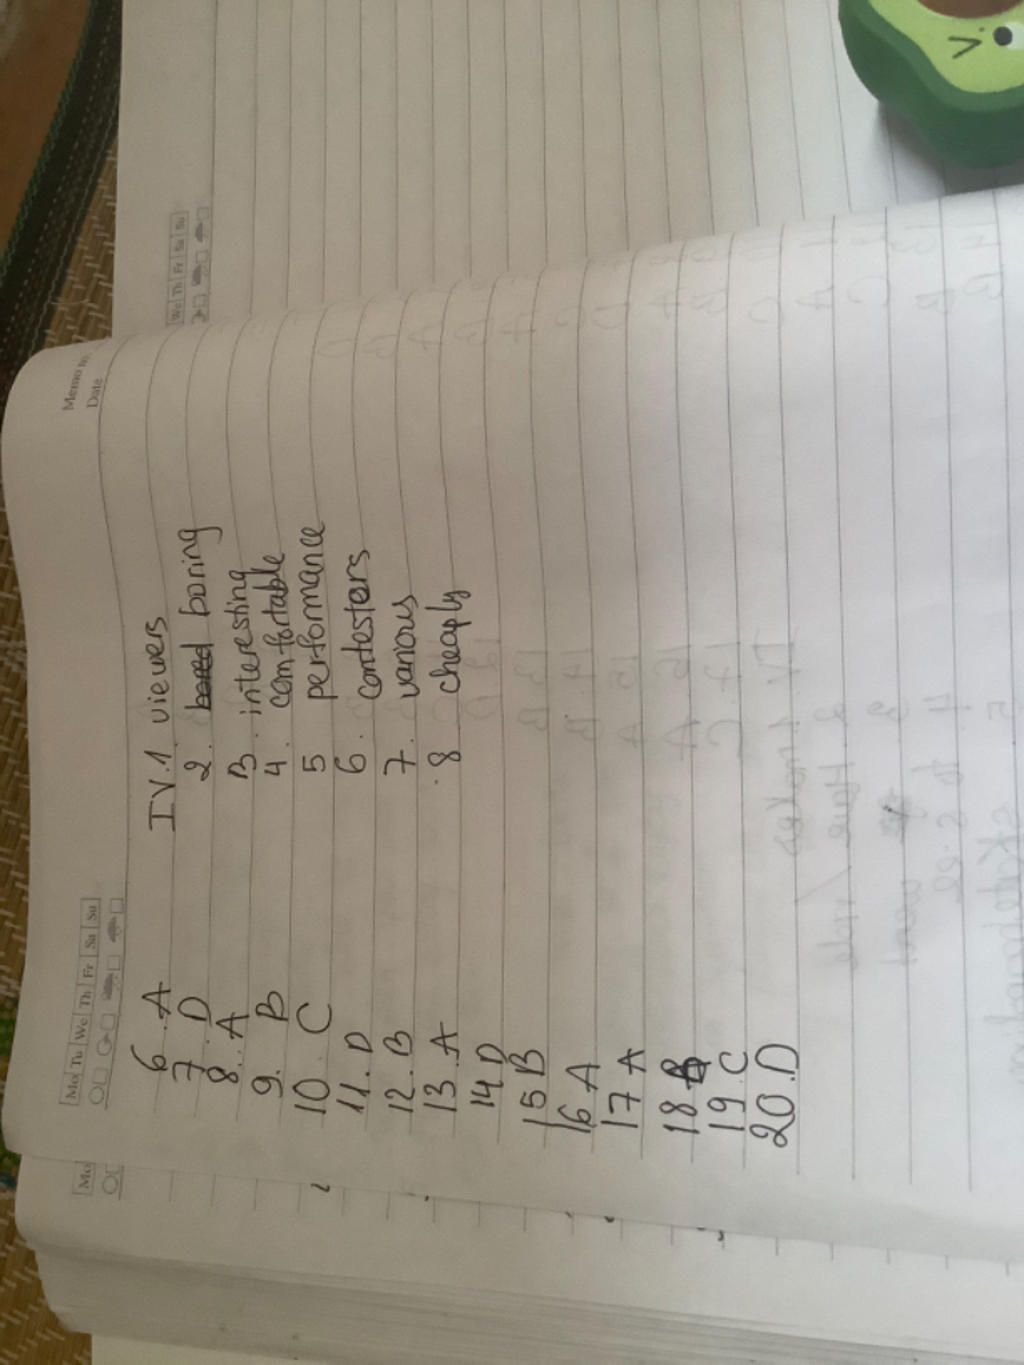 Mo Tu We Th Fr Sa Su
Memo
Date
6. A
7. D
8. A
9. B
10. C
11. D
12. B
13. A
14 D
15 B
16 A
17 A
18
19. C
20. D
IV. 1 viewers
2. bored boring
3. interesting
4. comfortable
5 performance
6. contesters
7. various
8 cheaply
We Th Fr Sa Su
Mo